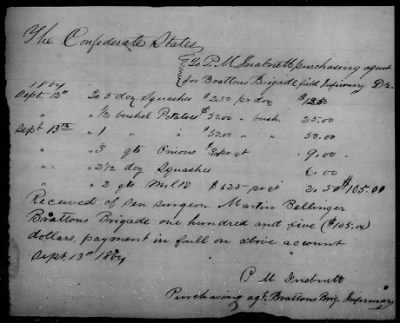 The Confederate States
To P. M. Inabnett purchasing agent
for Brattons Brigade field Infirmary Dr.
1864
Sept. 13th To 5 doz Squashes $2.50 per doz $12.50
" " 1/2 bushel Potatoes $52.00 " bush 25.00
Sept 13th " 1 " " $52.00 " " 52.00
" " 3 qts Onions $3 per qt 9.00
" " 2 1/2 doz Squashes 6.00
" " 2 qts Milk $1.25 per qt 2.50 $105.00
Received of Sen Surgeon Martin Bellinger
Brattons Brigade one hundred and five ($105.00)
dollars, payment in full on above account
Sept. 13th 1864
P. M. Inabnett
Purchasing agt. Brattons Brig. Infirmary